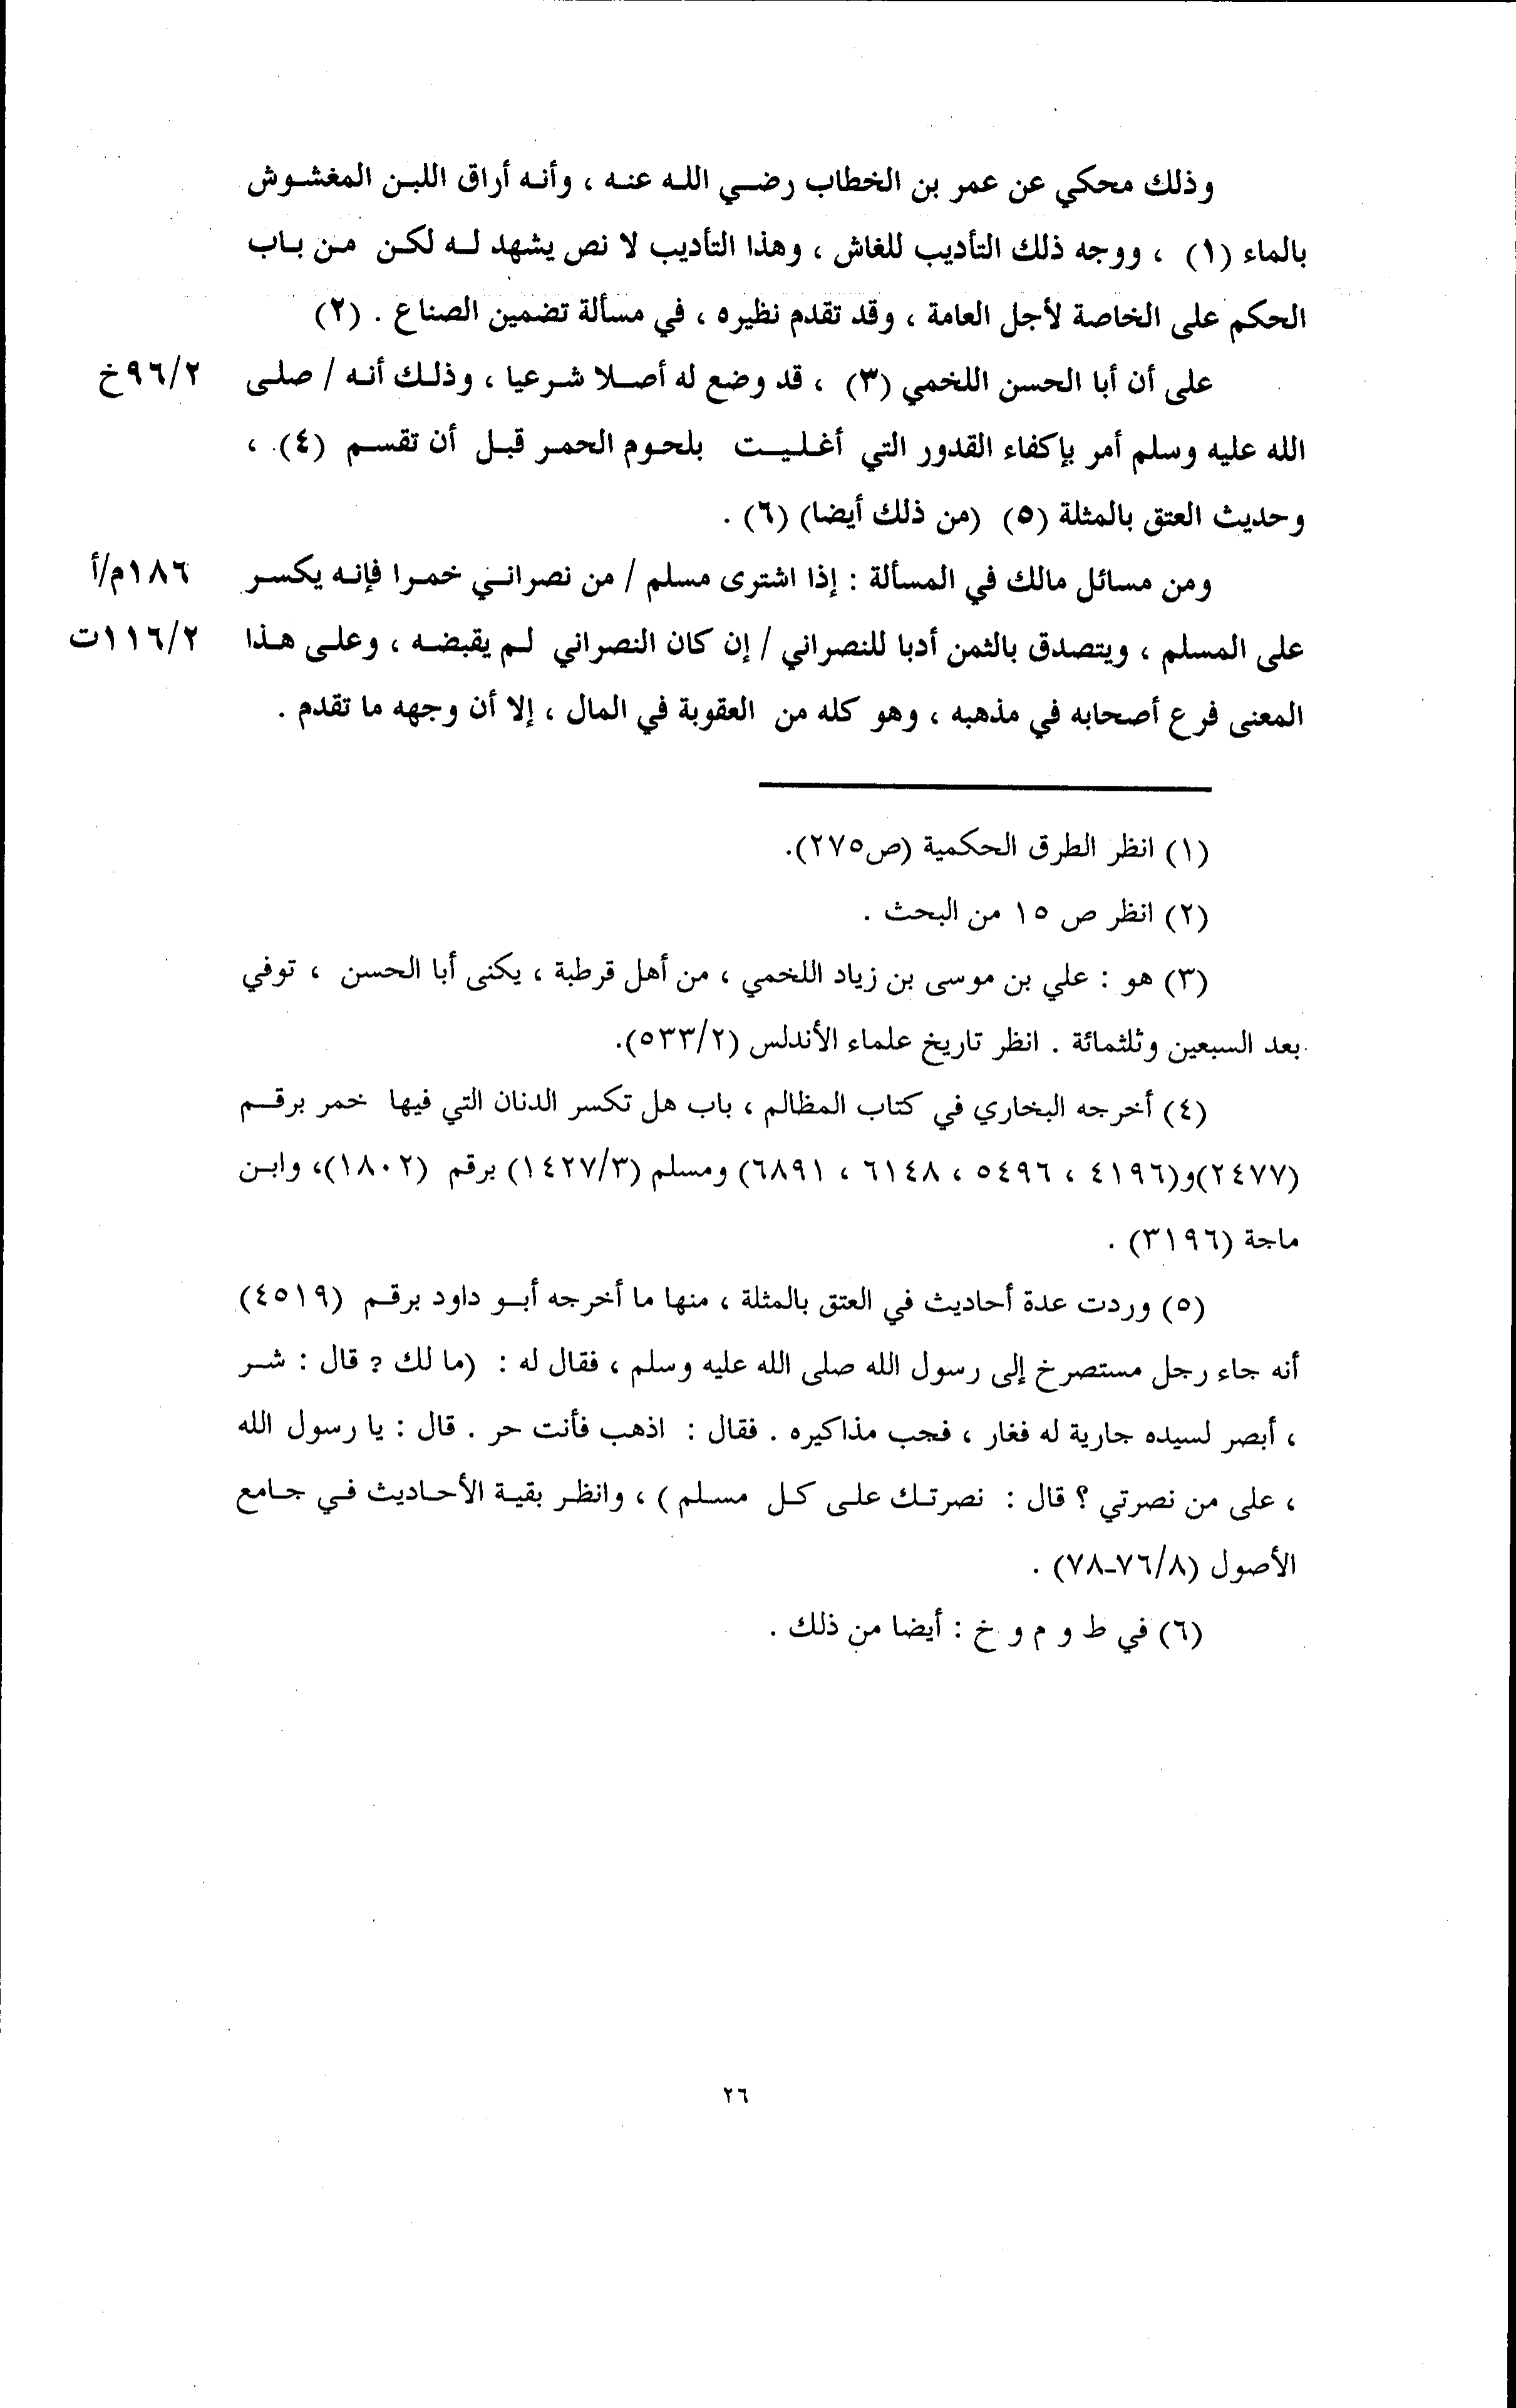 وذلك محكي عن عمر بن الخطاب رضي الله عنه ، وأنه أراق اللبن المغشوش
بالماء (١) ، ووجه ذلك التأديب للغاش ، وهذا التأديب لا نص يشهد له لكن من باب
الحكم على الخاصة لأجل العامة ، وقد تقدم نظيره ، في مسألة تضمين الصناع . (٢)
على أن أبا الحسن اللخمي (٣) ، قد وضع له أصلا شرعيا ، وذلك أنه / صلى ٩٦/٢خ
الله عليه وسلم أمر بإكفاء القدور التي أغليت بلحوم الحمر قبل أن تقسم (٤) ،
وحديث العتق بالمثلة (٥) (من ذلك أيضا) (٦) .
ومن مسائل مالك في المسألة : إذا اشترى مسلم / من نصراني خمرا فإنه يكسر ١٨٦م/أ
على المسلم ، ويتصدق بالثمن أدبا للنصراني / إن كان النصراني لم يقبضه ، وعلى هذا ١١٦/٢ت
المعنى فرع أصحابه في مذهبه ، وهو كله من العقوبة في المال ، إلا أن وجهه ما تقدم .
(١) انظر الطرق الحكمية (ص٢٧٥).
(٢) انظر ص ١٥ من البحث .
(٣) هو : علي بن موسى بن زياد اللخمي ، من أهل قرطبة ، يكنى أبا الحسن ، توفي
بعد السبعين وثلثمائة . انظر تاريخ علماء الأندلس (٥٣٣/٢).
(٤) أخرجه البخاري في كتاب المظالم ، باب هل تكسر الدنان التي فيها خمر برقم
(٢٤٧٧)و(٤١٩٦ ، ٥٤٩٦ ، ٦١٤٨ ، ٦٨٩١) ومسلم (١٤٢٧/٣) برقم (١٨٠٢)، وابن
ماجة (٣١٩٦) .
(٥) وردت عدة أحاديث في العتق بالمثلة ، منها ما أخرجه أبو داود برقم (٤٥١٩)
أنه جاء رجل مستصرخ إلى رسول الله صلى الله عليه وسلم ، فقال له : (ما لك ? قال : شر
، أبصر لسيده جارية له فغار ، فجب مذاكيره . فقال : اذهب فأنت حر . قال : يا رسول الله
، على من نصرتي ؟ قال : نصرتك على كل مسلم ) ، وانظر بقية الأحاديث في جامع
الأصول (٧٦/٨-٧٨) .
(٦) في ط و م و خ : أيضا من ذلك .
٢٦